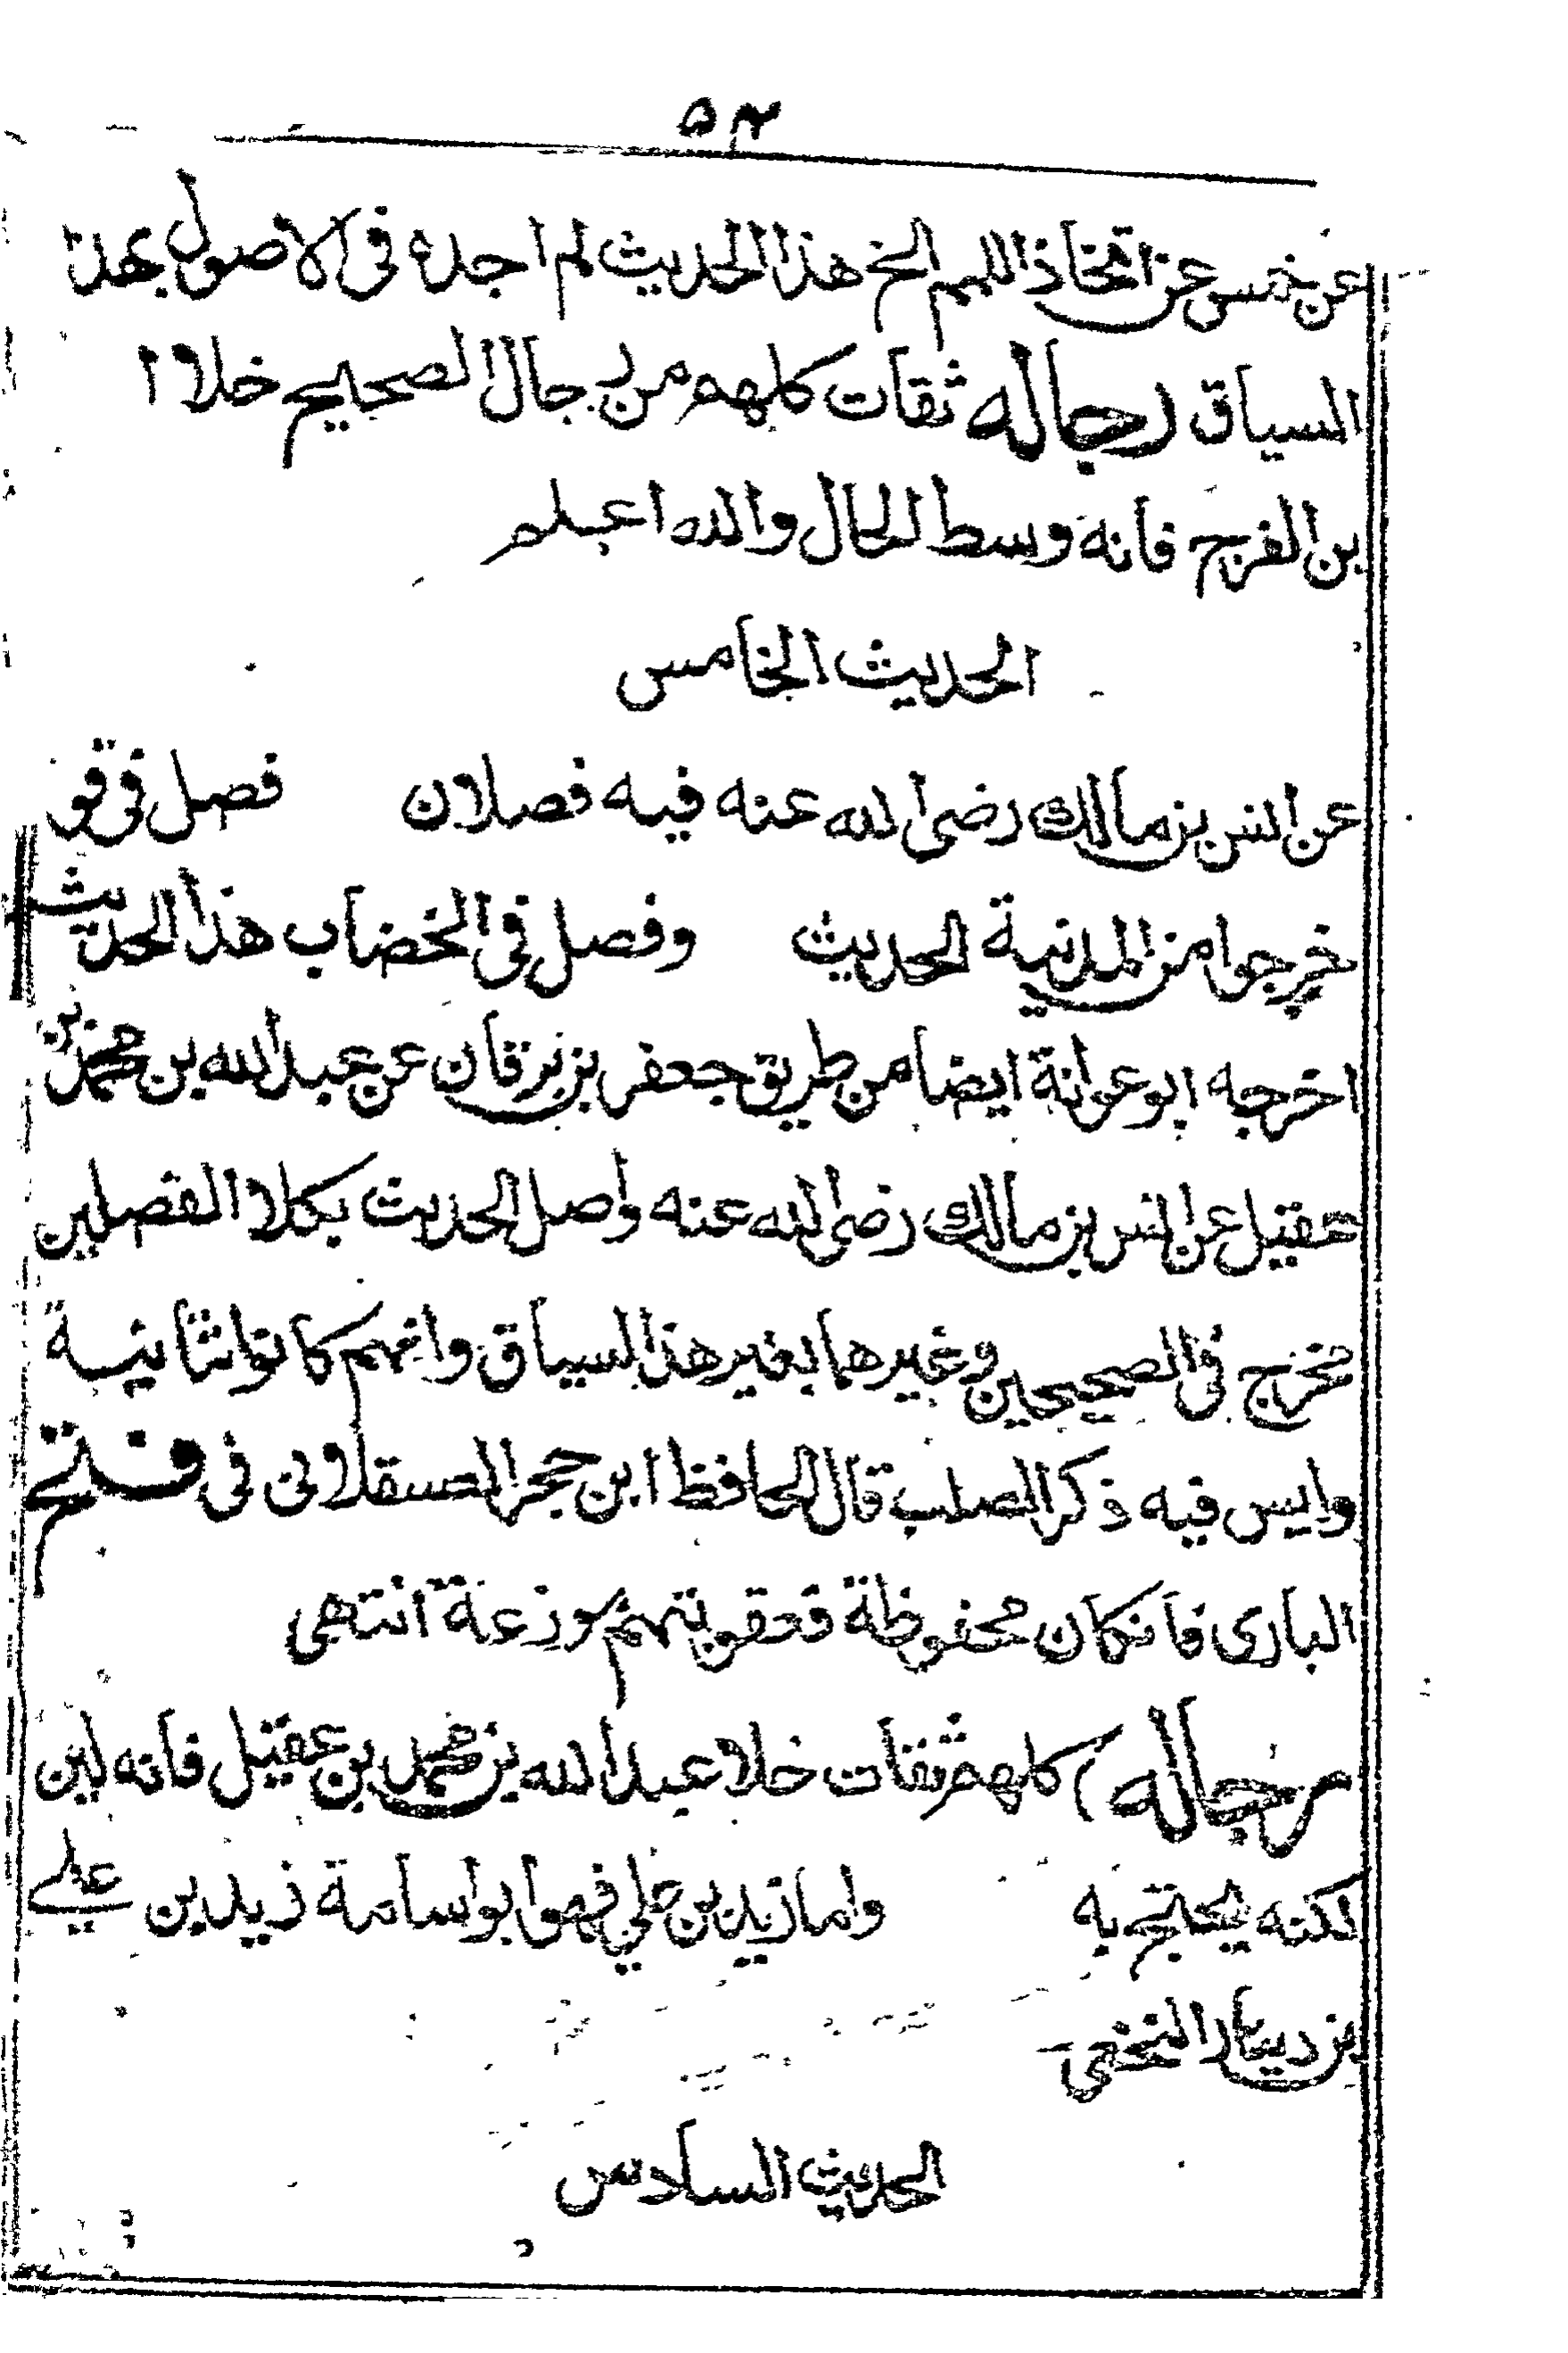 ٥٣
عن خمس عن اتخاذ اللهم الخ هذا الحديث لم اجده فى الاصول بهذا
السياق رجاله ثقات كلهم من رجال الصحيح خلا ا
بن الفرج فانه وسط الحال والله اعلم
الحديث الخامس
عن انس بن مالك رضى الله عنه فيه فصلان فصل فى قو
خرجوا من المدينة الحديث وفصل فى الخضاب هذا الحديث
اخرجه ابو عوانة ايضا من طريق جعفر بن برقان عن عبد الله بن محمد بن
عقيل عن انس بن مالك رضى الله عنه واصل الحديث بكلا الفصلين
مخرج فى الصحيحين وغيرهما بغير هذا السياق وانهم كانوا ثمانية
وليس فيه ذكر الصلب قال الحافظ ابن حجر العسقلانى فى فتح
البارى فانكان محفوظة فعقوبتهم موزعة انتهى
رجاله كلهم ثقات خلا عبد الله بن محمد بن عقيل فانه لين
لكنه يحتج به واما زيد بن علي فهو ابو اسامة زيد بن علي
بن دينار النخعى
الحديث السادس